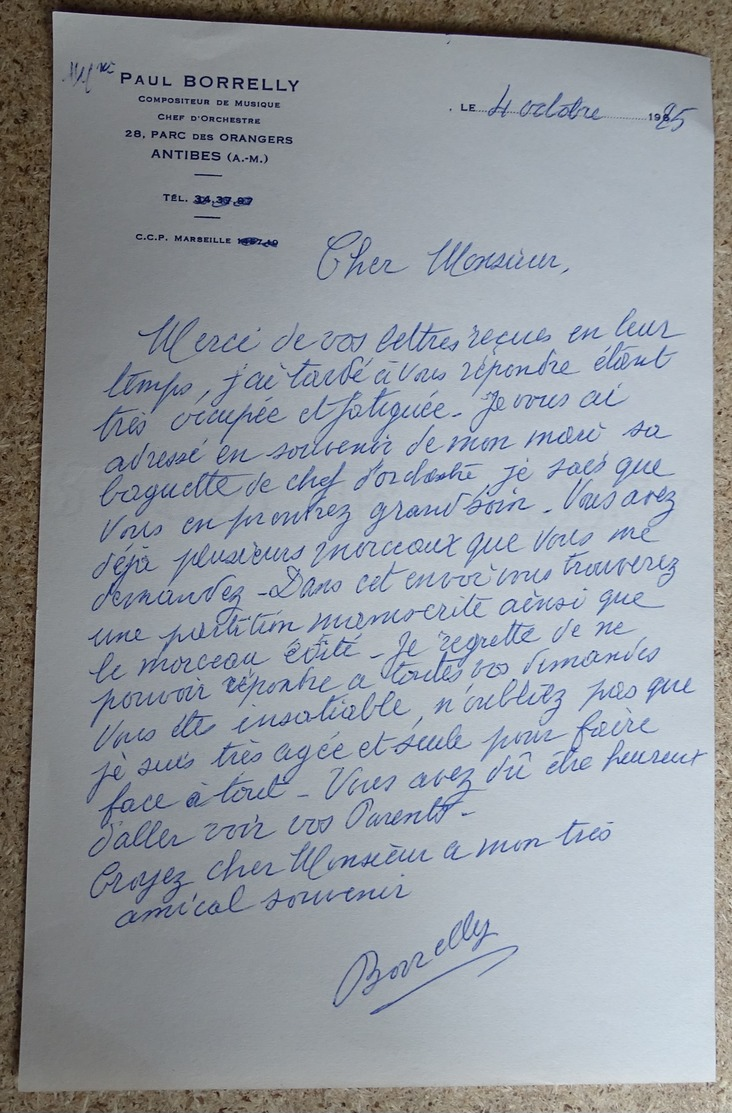 Mme PAUL BORRELLY
COMPOSITEUR DE MUSIQUE
CHEF D'ORCHESTRE
28, PARC DES ORANGERS
ANTIBES (A.-M.)
TÉL. 34.37.97
C.C.P. MARSEILLE
LE 4 octobre 1985
Cher Monsieur,
Merci de vos lettres reçues en leur
temps, j'ai tardé à vous répondre étant
très occupée et fatiguée - Je vous ai
adressé en souvenir de mon mari sa
baguette de chef d'orchestre je sais que
vous en prendrez grand soin - Vous avez
déjà plusieurs morceaux que vous me
demandez - Dans cet envoi vous trouverez
une partition manuscrite ainsi que
le morceau édité - Je regrette de ne
pouvoir répondre a toutes vos demandes
Vous êtes insatiable, n'oubliez pas que
je suis très agée et seule pour faire
face à tout - Vous avez dû être heureux
d'aller voir vos Parents -
Croyez cher Monsieur a mon très
amical souvenir
Borrelly